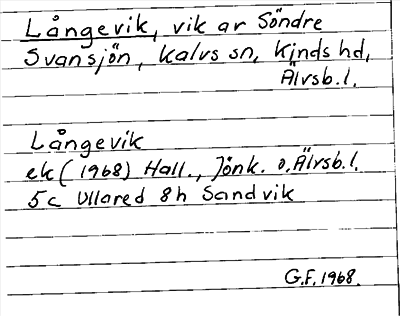 Långevik, vik av Söndre
Svansjön, Kalvs sn, Kinds hd,
Älvsb.l.
Långevik
ek (1968) Hall., Jönk. o. Älvsb.l.
5c Ullared 8h Sandvik
G.F. 1968.